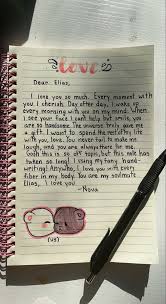 love
Dear Elias,
I love you so much. Every moment with
you I cherish. Day after day, I wake up
every morning with you on my mind. When
I see your face I can't help but smile, you
are so handsome. The universe truly gave me
a gift. I want to spend the rest of my life
with you, love. You never fail to make me
laugh, and you are always there for me.
Gosh this is so off topic, but this
has taken so long! I using my fancy hand-
writing! Anywho, I love you with every
fiber in my body. You are my soulmate
Elias, I love you
- Nova
(us)